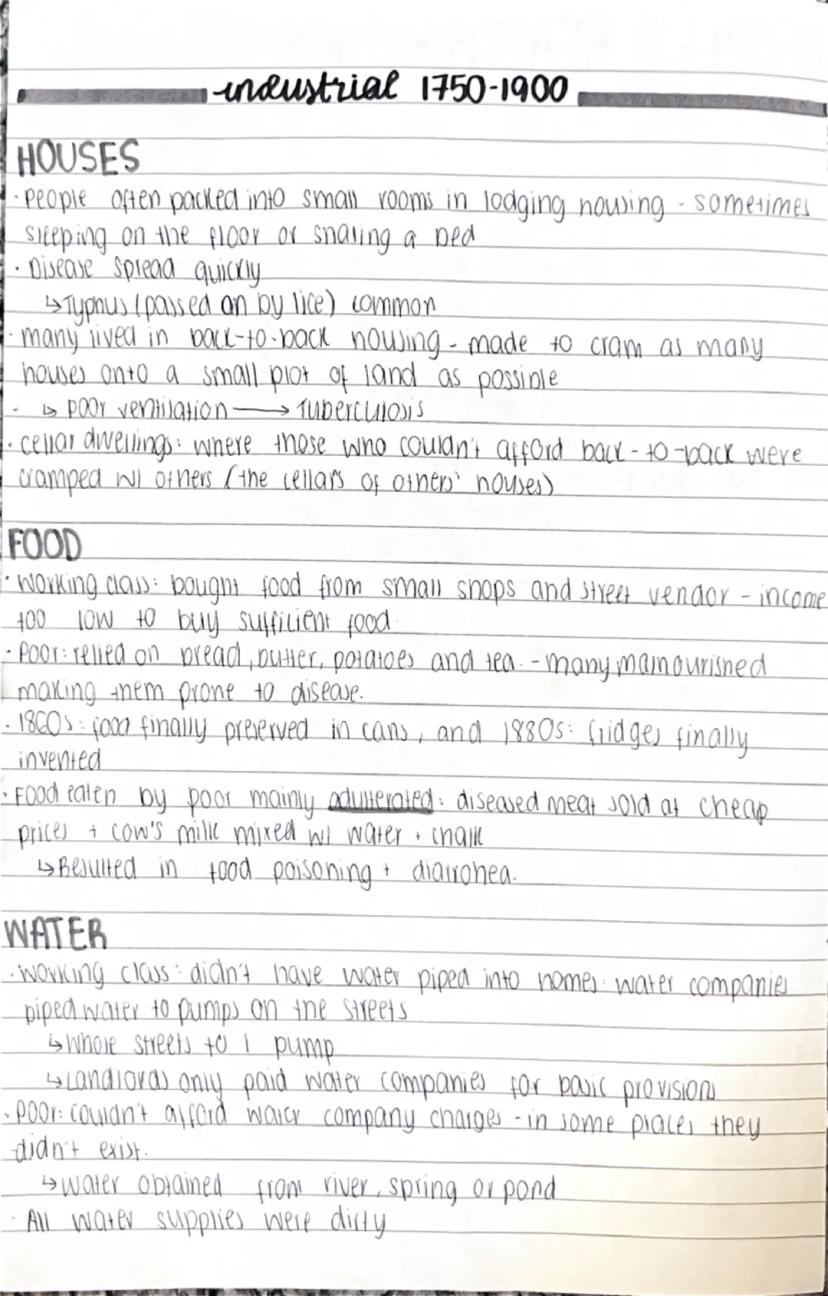 industrial 1750-1900
HOUSES
· people often packed into small rooms in lodging housing - sometimes
sleeping on the floor or sharing a bed
· Disease spread quickly
↳ Typhus (passed on by lice) common
· many lived in back-to-back housing - made to cram as many
houses onto a small plot of land as possible
· ↳ poor ventilation → Tuberculosis
· cellar dwellings: where those who couldn't afford back-to-back were
cramped w/ others (the cellars of others' houses)
FOOD
· Working class: bought food from small shops and street vendor - income
too low to buy sufficient food.
· Poor: relied on bread, butter, potatoes and tea. - many malnourished
making them prone to disease.
· 1860s: food finally preserved in cans, and 1880s: fridges finally
invented
· Food eaten by poor mainly adulterated: diseased meat sold at cheap
prices + cow's milk mixed w/ water + chalk
↳ Resulted in food poisoning + diarrohea.
WATER
· Working class: didn't have water piped into homes: water companies
piped water to pumps on the streets
↳ Whole streets to 1 pump
↳ Landlords only paid water companies for basic provision
· Poor: couldn't afford water company charges - in some places they
didn't exist.
↳ Water obtained from river, spring or pond
· All water supplies were dirty